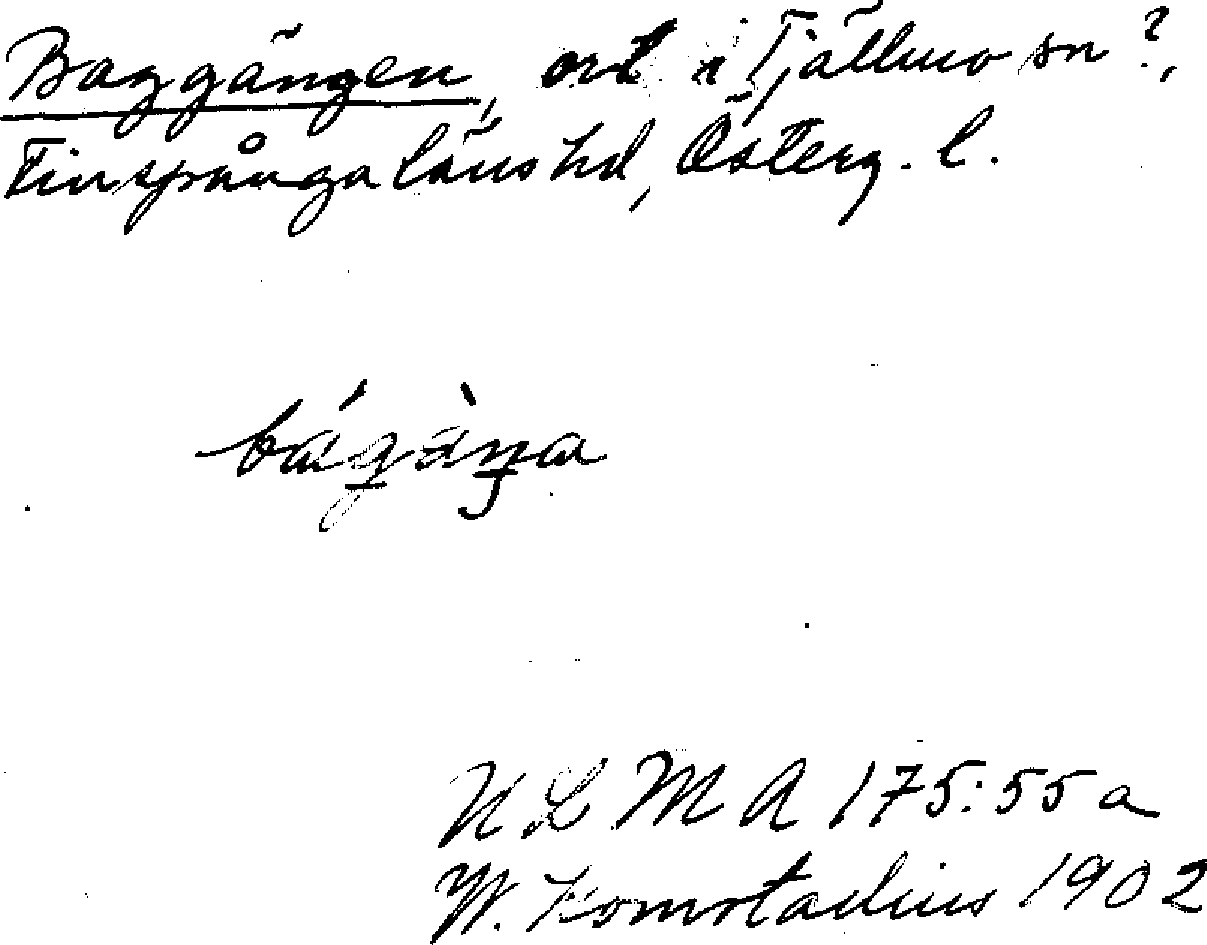 Baggängen, ort i Tjällmo sn?,
Finspånga läns hd, Österg. l.
bágàŋa
ULMA 175:55a
W. Komstadius 1902